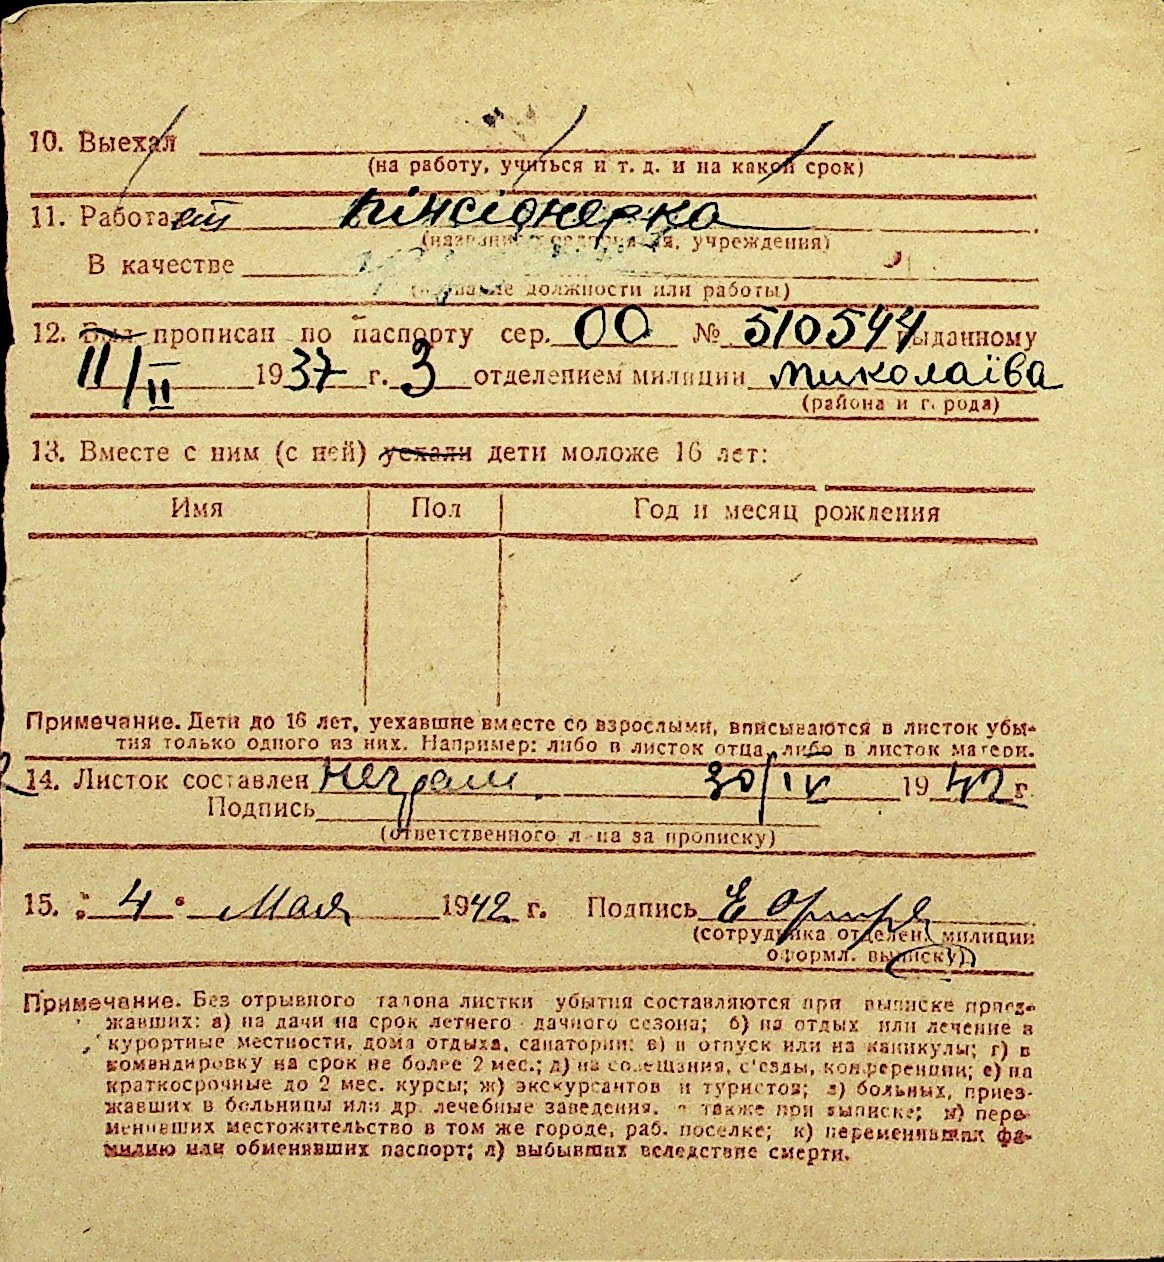 10. Выехал
(на работу, учиться и т. д. и на какой срок)
11. Работает пінсіонерка
(название предприятия, учреждения)
В качестве
(название должности или работы)
12. Был прописан по паспорту сер. ОО № 510544 выданному
11/II 1937 г. 3 отделением милиции Миколаїва
(района и города)
13. Вместе с ним (с ней) уехали дети моложе 16 лет:
Имя Пол Год и месяц рождения
Примечание. Дети до 16 лет, уехавшие вместе со взрослыми, вписываются в листок убы-
тия только одного из них. Например: либо в листок отца, либо в листок матери.
14. Листок составлен 30/IV 1942 г.
Подпись
(ответственного л-ца за прописку)
15. „ 4 " Мая 1942 г. Подпись
(сотрудника отделен. милиции
оформл. выписку)
Примечание. Без отрывного талона листки убытия составляются при выписке приез-
жавших: а) на дачи на срок летнего дачного сезона; б) на отдых или лечение в
курортные местности, дома отдыха, санатории; в) в отпуск или на каникулы; г) в
командировку на срок не более 2 мес.; д) на совещания, с'езды, конференции; е) на
краткосрочные до 2 мес. курсы; ж) экскурсантов и туристов; з) больных, приез-
жавших в больницы или др. лечебные заведения, а также при выписке; и) пере-
менивших местожительство в том же городе, раб. поселке; к) переменивших фа-
милию или обменявших паспорт; л) выбывших вследствие смерти.